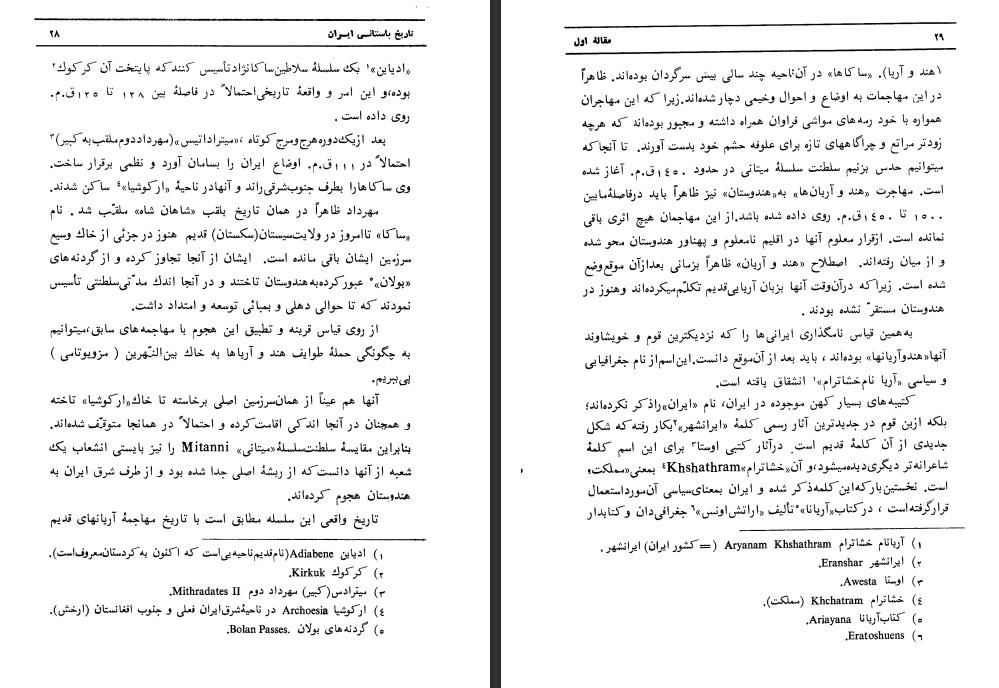 ۲۸ تاریخ باستانی ایران
«ادیابن»۱ یک سلسلهٔ سلاطین ساکانژاد تأسیس کنند که پایتخت آن کرکوک۲
بوده،و این امر و واقعهٔ تاریخی احتمالاً در فاصلهٔ بین ۱۲۸ تا ۱۲۵ق.م.
روی داده است .
بعد ازیک‌دوره‌هرج‌ومرج کوتاه ،«میترا داتیس»(مهرداد دوم ملقب به کبیر)۳
احتمالاً در ۱۱۱ق.م. اوضاع ایران را بسامان آورد و نظمی برقرار ساخت.
وی ساکاها را بطرف جنوب‌شرقی راند و آنها در ناحیهٔ «ارکوشیا»۴ ساکن شدند.
مهرداد ظاهراً در همان تاریخ بلقب «شاهان شاه» ملقّب شد . نام
«ساکا» تا امروز در ولایت سیستان(سکستان) قدیم هنوز در جزئی از خاک وسیع
سرزمین ایشان باقی مانده است. ایشان از آنجا تجاوز کرده و از گردنه‌های
«بولان»۵ عبور کرده به هندوستان تاختند و در آنجا اندک مدّتی سلطنتی تأسیس
نمودند که تا حوالی دهلی و بمبائی توسعه و امتداد داشت.
از روی قیاس قرینه و تطبیق این هجوم با مهاجمه‌های سابق،میتوانیم
به چگونگی حملهٔ طوایف هند و آریاها به خاک بین‌النّهرین ( مزوپوتامی )
پی‌ببریم.
آنها هم عیناً از همان‌سرزمین اصلی برخاسته تا خاک«ارکوشیا» تاخته
و همچنان در آنجا اندکی اقامت کرده و احتمالاً در همانجا متوقّف شده‌اند.
بنابراین مقایسهٔ سلطنت‌سلسلهٔ«میتانی» Mitanni را نیز بایستی انشعاب یک
شعبه از آنها دانست‌که از ریشهٔ اصلی جدا شده بود و از طرف شرق ایران به
هندوستان هجوم کرده‌اند.
تاریخ واقعی این سلسله مطابق است با تاریخ مهاجمهٔ آریانهای قدیم
۱) ادیابن Adiabene(نام‌قدیم‌ناحیه‌یی‌است که اکنون به‌کردستان‌معروف‌است).
۲) کرکوک Kirkuk.
۳) میترادس(کبیر) مهرداد دوم Mithradates II.
۴) ارکوشیا Archoesia در ناحیهٔ‌شرق‌ایران فعلی و جنوب افغانستان (ارخش).
۵) گردنه‌های بولان .Bolan Passes.
۲۹ مقالهٔ اول
(هند و آریا). «ساکاها» در آن‌ناحیه چند سالی بیش سرگردان بوده‌اند. ظاهراً
در این مهاجمات به اوضاع و احوال وخیمی دچار شده‌اند.زیرا که این مهاجران
همواره با خود رمه‌های مواشی فراوان همراه داشته و مجبور بوده‌اند که هرچه
زودتر مراتع و چراگاههای تازه برای علوفه حشم خود بدست آورند. تا آنجا که
میتوانیم حدس بزنیم سلطنت سلسلهٔ میتانی در حدود ۱۴۵۰ق.م. آغاز شده
است. مهاجرت «هند و آریان‌ها» به«هندوستان» نیز ظاهراً باید درفاصلهٔ‌مابین
۱۵۰۰ تا ۱۴۵۰ق.م. روی داده شده باشد.از این مهاجمان هیچ اثری باقی
نمانده است. ازقرار معلوم آنها در اقلیم نامعلوم و پهناور هندوستان محو شده
و از میان رفته‌اند. اصطلاح «هند و آریان» ظاهراً بزمانی بعد از آن موقع‌وضع
شده است. زیرا که درآن‌وقت آنها بزبان آریایی‌قدیم تکلّم‌میکرده‌اند وهنوز در
هندوستان مستقرّ نشده بودند .
به‌همین قیاس نامگذاری ایرانی‌ها را که نزدیکترین قوم و خویشاوند
آنها«هندوآریانها» بوده‌اند ، باید بعد از آن‌موقع دانست.این‌اسم‌از نام جغرافیایی
و سیاسی «آریا نام‌خشاترام»۱ انشقاق یافته است.
کتیبه‌های بسیار کهن موجوده در ایران، نام «ایران»راذکر نکرده‌اند؛
بلکه ازین قوم در جدیدترین آثار رسمی کلمهٔ «ایرانشهر»۲بکار رفته‌که شکل
جدیدی از آن کلمهٔ قدیم است. درآثار کتبی اوستا۳ برای این اسم کلمهٔ
شاعرانه‌تر دیگری‌دیده‌میشود،و آن«خشاترام»Khshathram۴ بمعنی«مملکت»
است. نخستین‌بارکه‌این‌کلمه‌ذکر شده و ایران بمعنای‌سیاسی آن‌مورداستعمال
قرارگرفته‌است ، درکتاب«آریانا»۵تألیف «اراتش‌اونس»۶ جغرافی‌دان وکتابدار
۱) آریانام خشاترام Aryanam Khshathram (=کشور ایران) ایرانشهر .
۲) ایرانشهر Eranshar.
۳) اوستا Awesta
۴) خشاترام Khchatram (مملکت).
۵) کتاب‌آریانا Ariayana.
۶) Eratoshuens.